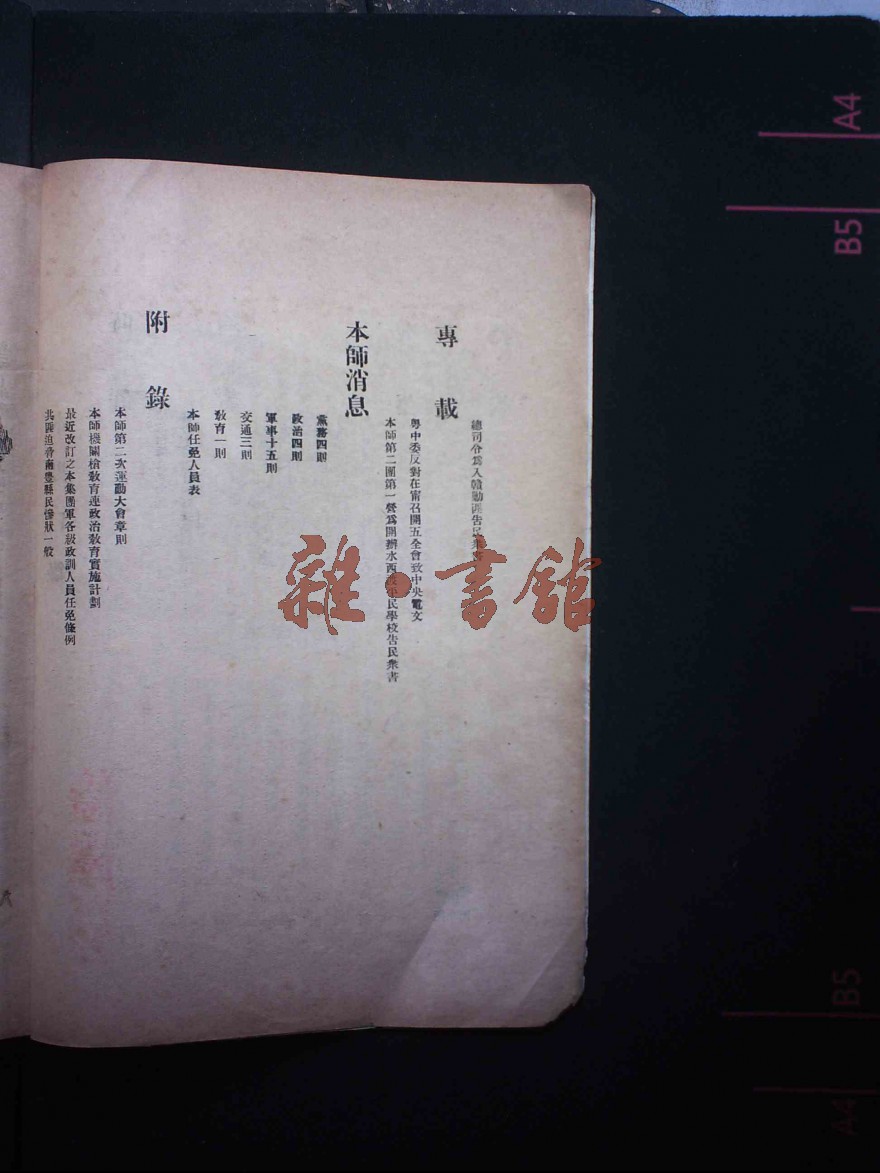 專載
總司令為入贛勦匪告民衆書
粵中委反對在甯召開五全會致中央電文
本師第二團第一營為開辦水西平民學校告民衆書
本師消息
黨務四則
政治四則
軍事十五則
交通三則
教育一則
本師任免人員表
附錄
本師第二次運動大會章則
本師機關槍教育連政治教育實施計劃
最近改訂之本集團軍各級政訓人員任免條例
共匪迫脅南豐縣民慘狀一般
雜·書館
A4
B5
B5
A4